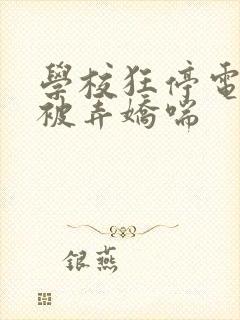 學校狂停電
被弄嬌喘
银燕